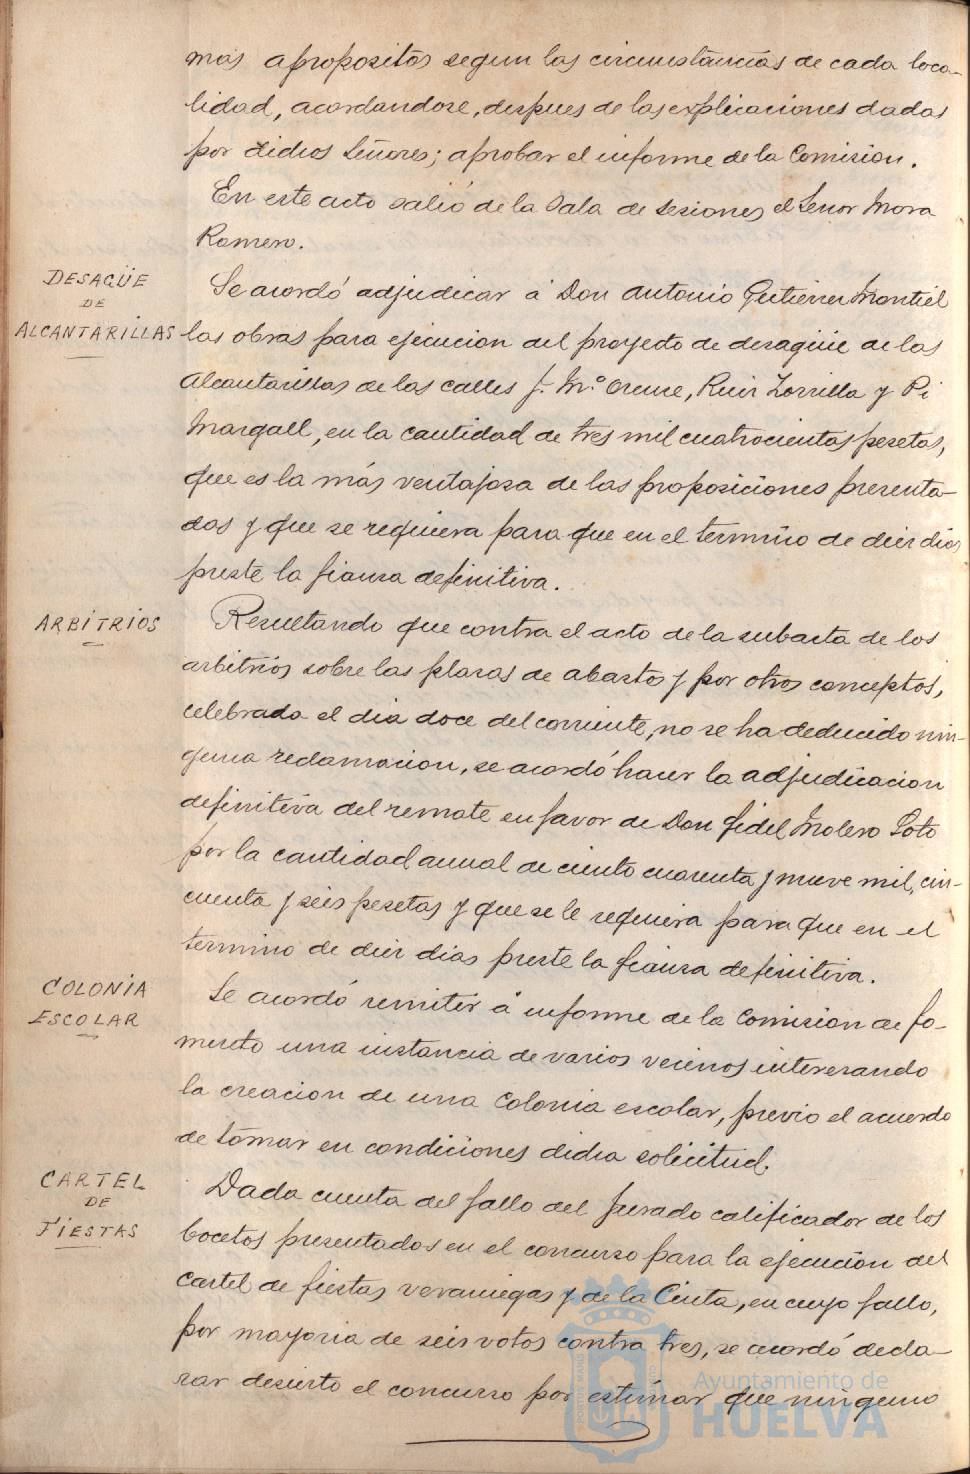 mas apropositos segun las circunstancias de cada loca-
lidad, acordandose, despues de las explicaciones dadas
por dichos Señores; aprobar el informe de la Comision.
En este acto salió de la Sala de Sesiones el Señor Mora
Romero.
DESAGÜE
DE
ALCANTARILLAS
Se acordó adjudicar á Don Antonio Gutierrez Montiel
las obras para ejecucion del proyecto de desagüe de las
Alcantarillas de las calles J. Mª Orense, Ruiz Zorrilla y Pi
Margall, en la cantidad de tres mil cuatrocientas pesetas,
que es la más ventajosa de las proposiciones presenta-
das y que se requiera para que en el termino de diez dias
preste la fianza definitiva.
ARBITRIOS
Resultando que contra el acto de la subasta de los
arbitrios sobre las plazas de abastos y por otros conceptos,
celebrada el dia doce del corriente, no se ha deducido nin-
guna reclamacion, se acordó hacer la adjudicacion
definitiva del remate en favor de Don Fidel Molero Soto
por la cantidad anual de ciento cuarenta y nueve mil, cin-
cuenta y seis pesetas y que se le requiera para que en el
termino de diez dias preste la fianza definitiva.
COLONIA
ESCOLAR
Se acordó remitir á informe de la Comision de Fo-
mento una instancia de varios vecinos interesando
la creacion de una Colonia escolar, previo el acuerdo
de tomar en condiciones dicha solicitud.
CARTEL
DE
FIESTAS
Dada cuenta del fallo del Jurado calificador de los
bocetos presentados en el concurso para la ejecucion del
Cartel de fiestas veraniegas y de la Cinta, en cuyo fallo,
por mayoria de seis votos contra tres, se acordó decla-
rar desierto el concurso por estimar que ninguno
Ayuntamiento de
HUELVA